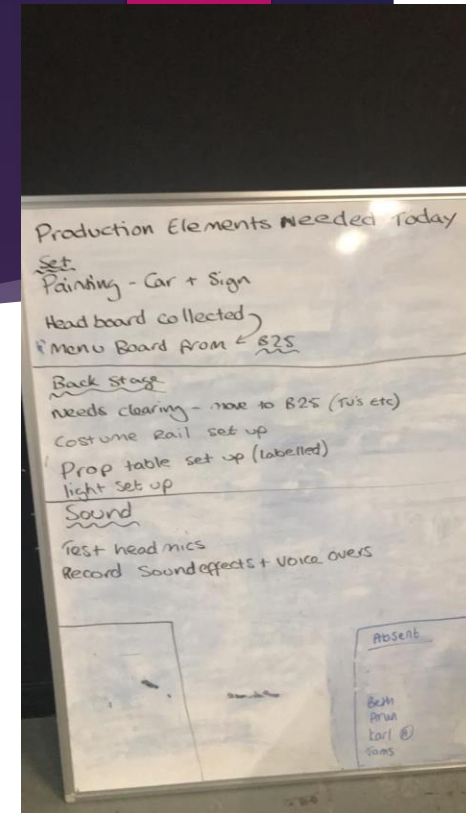 Production Elements Needed Today
Set
Painting - Car + Sign
Head board collected
Menu Board from B25
Back Stage
Needs clearing - move to B25 (TV's etc)
Costume Rail set up
Prop table set up (labelled)
light set up
Sound
Test head mics
Record Sound effects + Voice overs
Absent
Beth
Karl